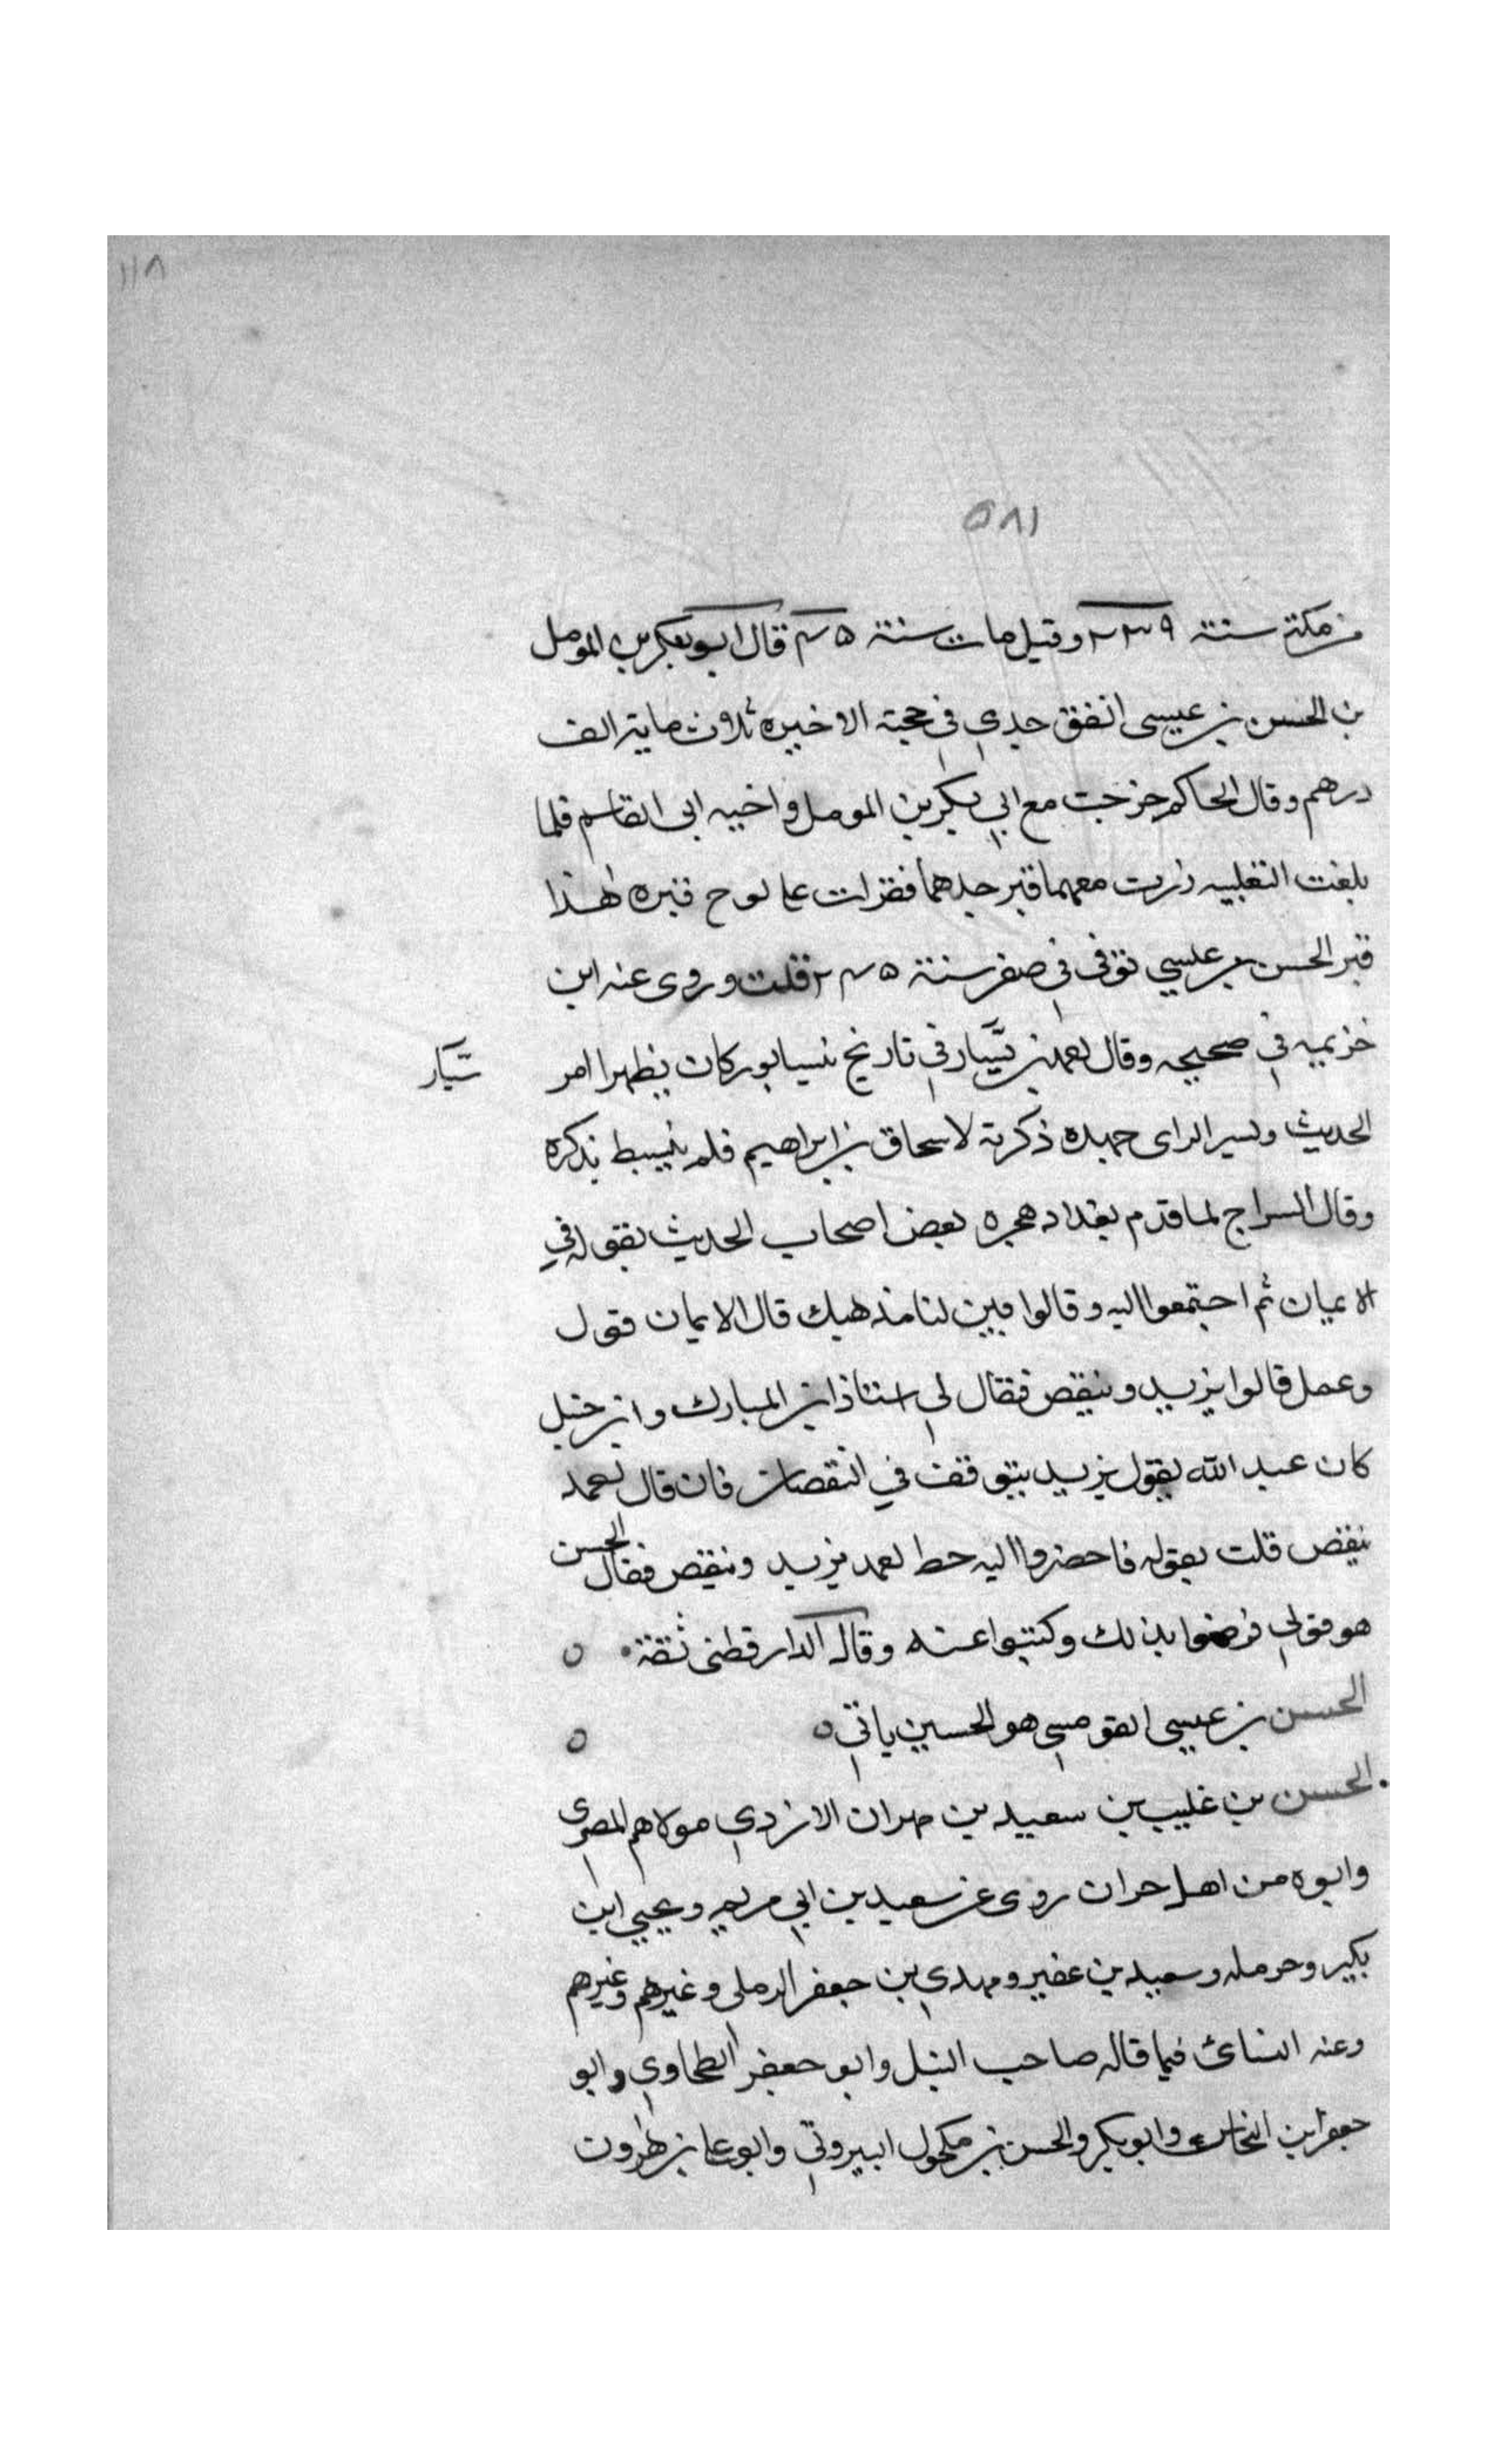 ١١٨
٥٨١
من مكة سنة ٢٣٩ وقيل مات سنة ٢٤٥ قال ابو بكر بن المومل
بن الحسن بن عيسى انفق جدي في حجته الاخيره ثلاث ماية الف
درهم وقال الحاكم خرجت مع ابي بكر بن المومل واخيه ابى القاسم فلما
بلغت الثعلبيه زرت معهما قبر جدهما فقرات على لوح قبره هذا
قبر الحسن بن عيسي توفى في صفر سنة ٢٤٥ قلت وروى عنه ابن
خزيمه في صحيحه وقال احمد بن سيار في تاريخ نيسابور كان يظهر امر
سيار
الحديث ويسير الراى جهده ذكرته لاسحاق بن ابراهيم فلم ينبسط بذكره
وقال السراج لما قدم بغداد هجره بعض اصحاب الحديث بقوله في
الايمان ثم اجتمعوا اليه وقالوا بين لنا مذهبك قال الايمان قول
وعمل قالوا يزيد وينقص فقال لي استاذ ابن المبارك وابن حنبل
كان عبد الله يقول يزيد يتوقف في النقصان فان قال احمد
ينقص قلت بقوله فاحضروا اليه خط احمد يزيد وينقص فقال الحسن
هو قولي فرضوا بذلك وكتبوا عنه وقال الدارقطنى ثقة
الحسن بن عيسى القومسي هو الحسين ياتي
الحسن بن غليب بن سعيد بن مهران الازدي مولاهم المصرى
وابوه من اهل حران روى عن سعيد بن ابي مريم ويحيي ابن
بكير وحرمله وسعيد بن عفير ومهدي بن جعفر الرملى وغيرهم وغيرهم
وعنه النسائ فيما قاله صاحب النبل وابو جعفر الطحاوي وابو
جعفر ابن النحاس وابو بكر والحسن بن مكحول البيروتي وابو على بن هرون